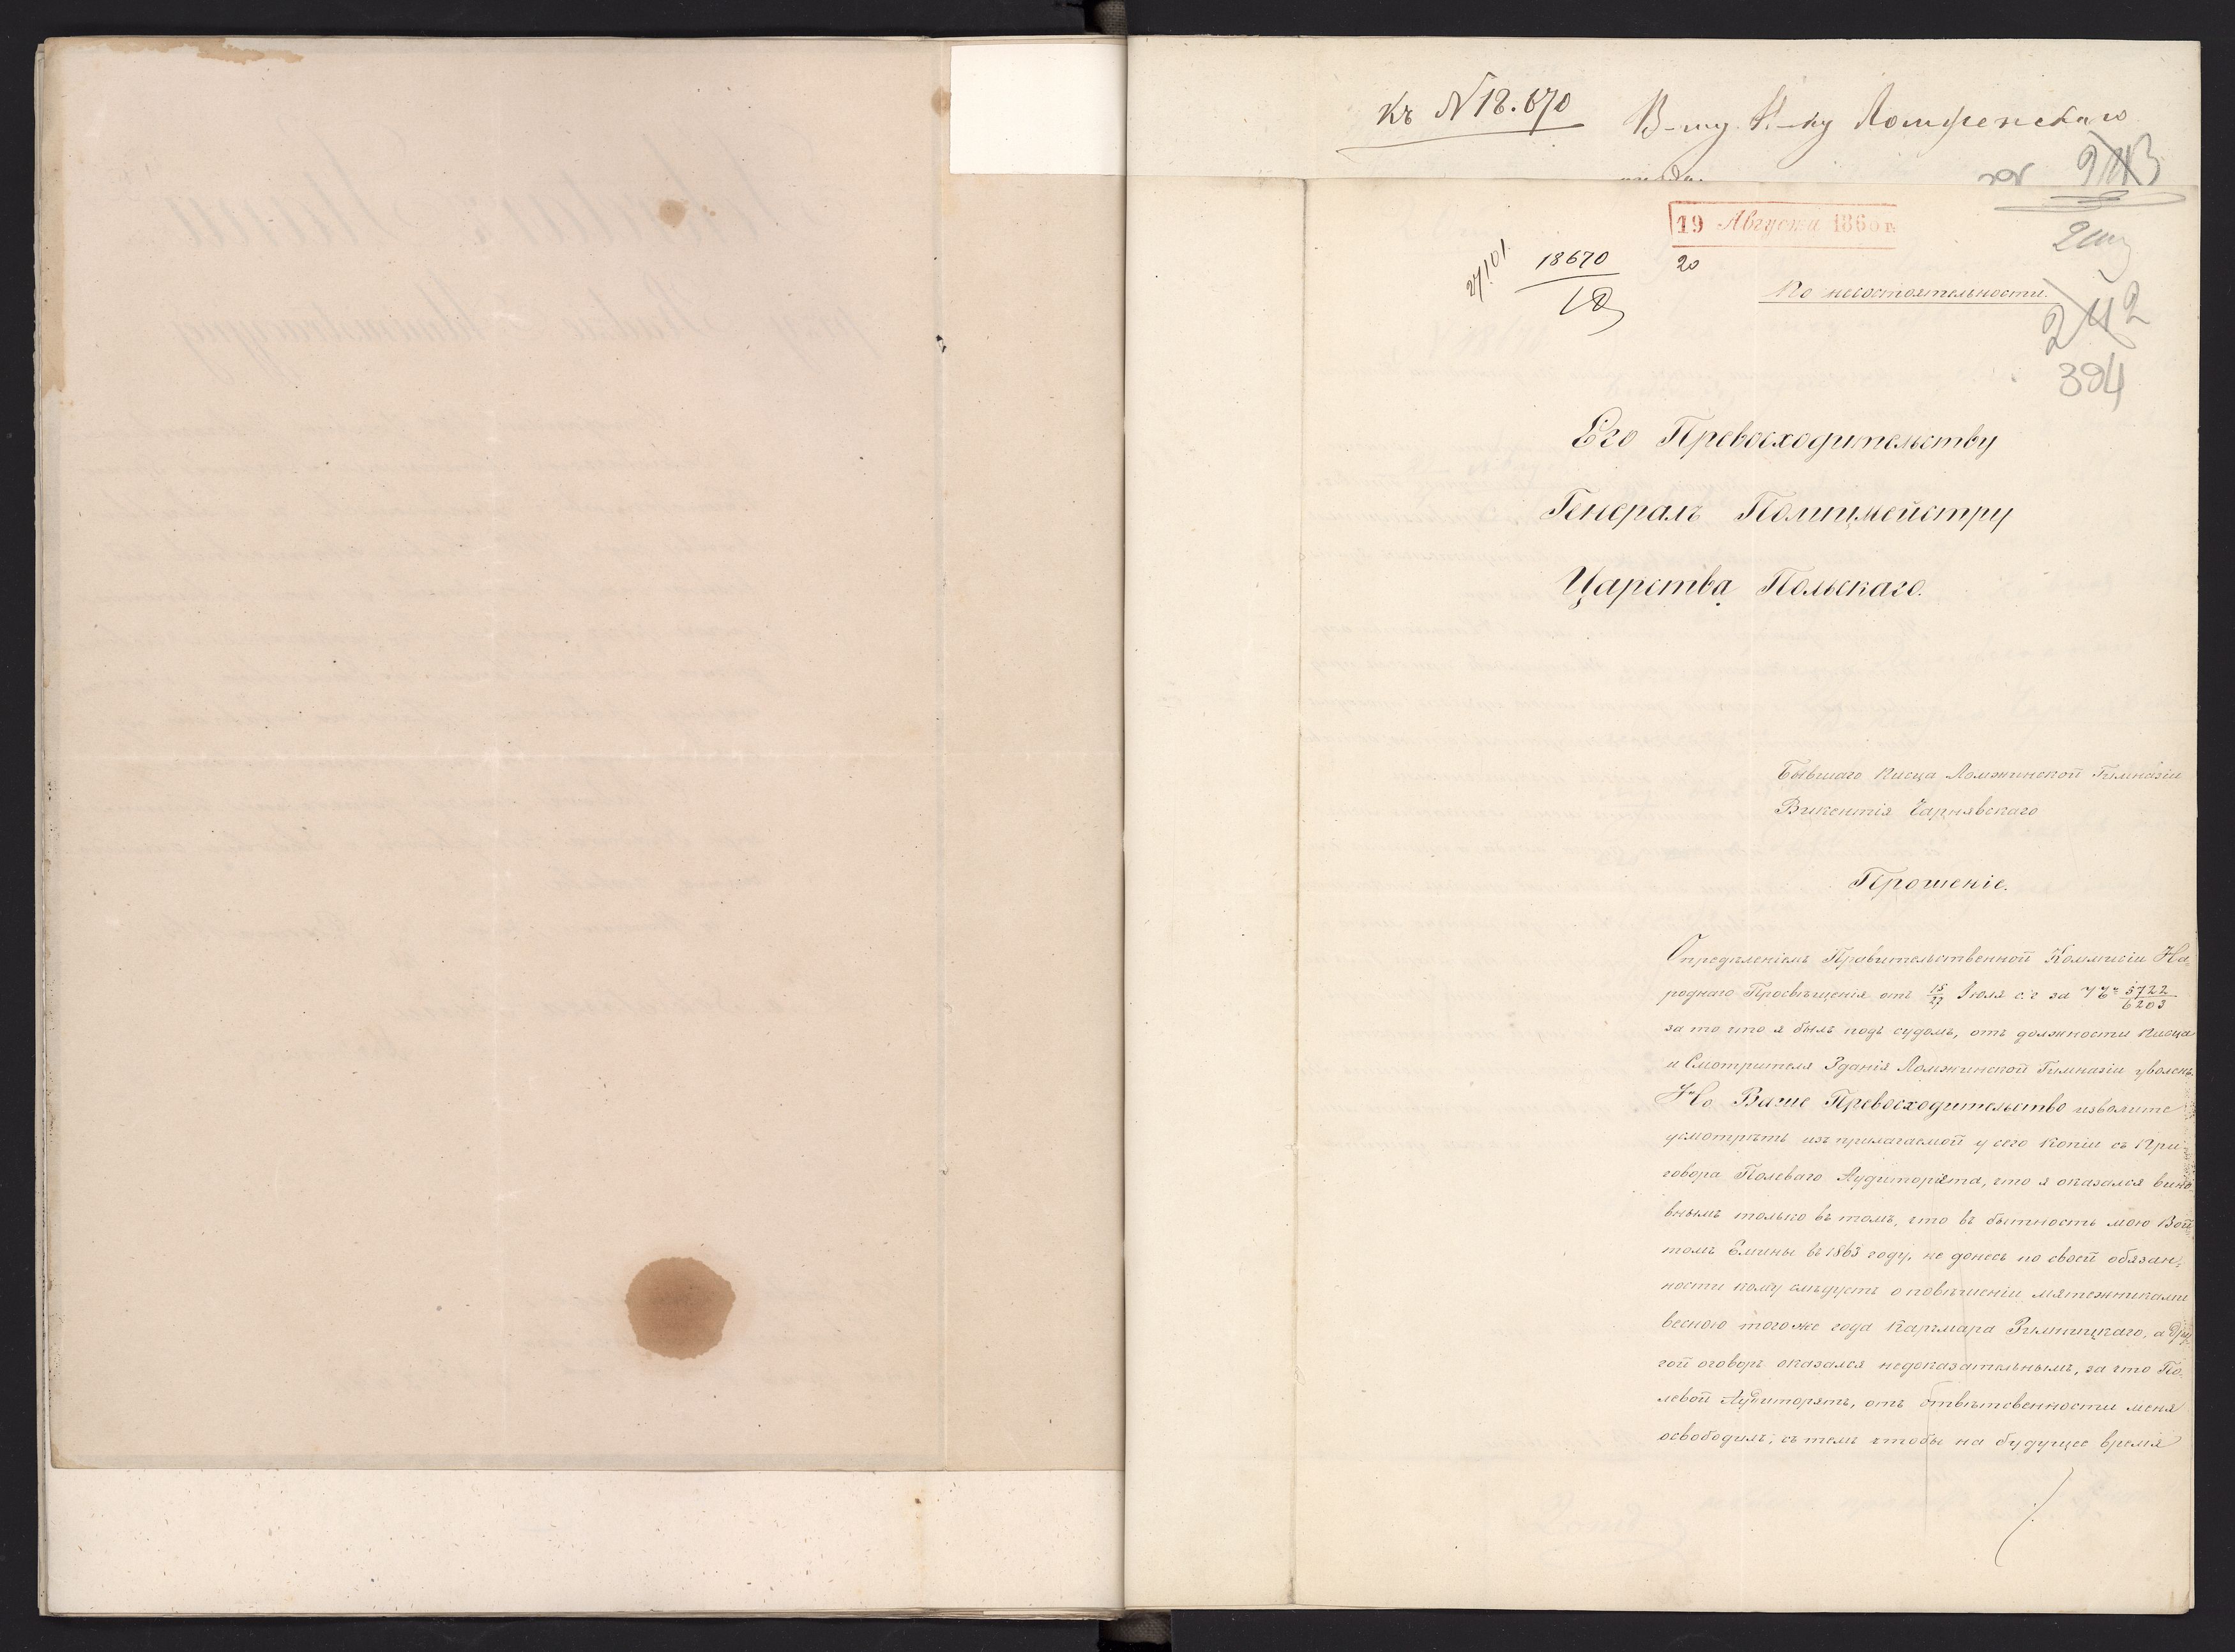 Къ N 18.670
В-му Н-ку Ломженскаго
19 Августа 1866 г.
27101
18670
20
По несостоятельности.
242
394
Его Превосходительству
Генералъ Полицмейстру
Царства Польскаго.
Бывшаго Писца Ломжинской Гимназіи
Викентія Чарнявскаго
Прошеніе.
Опредѣленіемъ Правительственной Коммисіи На-
роднаго Просвѣщенія отъ 15/27 Іюля с. г за № 5722/6203
за то что я былъ подъ судомъ, отъ должности Писца
и Смотрителя Зданія Ломжинской Гимназіи уволенъ.
Но Ваше Превосходительство изволите
усмотрѣть изъ прилагаемой у сего Копіи съ При-
говора Полеваго Аудиторіата, что я оказался вино-
внымъ только въ томъ, что въ бытность мою Вой-
томъ Гмины въ 1863 году, не донесъ по своей обязан-
ности кому слѣдуетъ о повѣшеніи мятежниками
весною тогоже года Карчмара Римницкаго, а дру-
гой оговоръ оказался недоказательнымъ, за что По-
левой Аудиторятъ, отъ отвѣтсвенности меня
освободилъ, съ темъ чтобы на будущее время